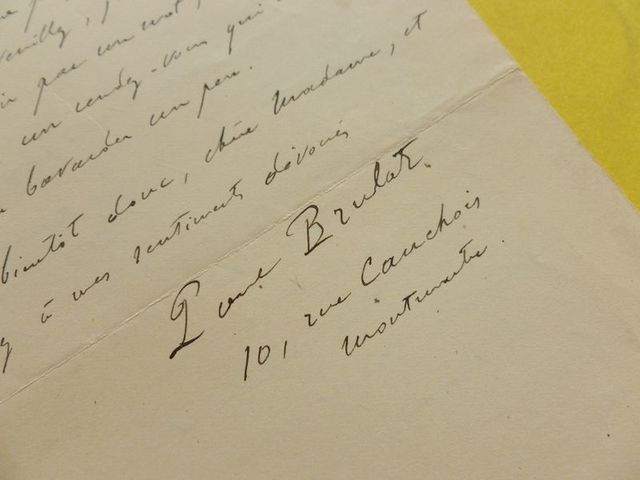 par un mot,
un rendez-vous qui
bavarder un peu.
bientôt donc, chère Madame, et
à mes sentiments dévoués
Paul Brulat.
10, rue Cauchois
Montmartre.